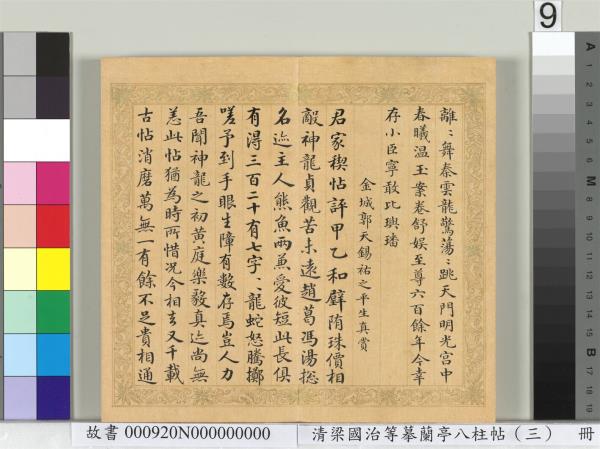 離﹕舞秦雲龍驚蕩﹕跳天門明光宮中
春曦温玉案卷舒娱至尊六百餘年今幸
存小臣寧敢比璵璠
金城郭天錫祐之平生真賞
君家稧帖評甲乙和璧隋珠價相
敵神龍貞觀苦未遠趙葛馮湯揔
名迹主人熊魚兩兼愛彼短此長俱
有得三百二十有七字﹕龍蛇怒騰擲
嗟予到手眼生障有數存焉豈人力
吾聞神龍之初黄庭樂毅真迹尚無
恙此帖猶為時所惜况今相去又千載
古帖消磨萬無一有餘不足貴相通
9
A 1 2 3 4 5 6 M 8 9 10 11 12 13 14 15 B 17 18 19
故書 000920N000000000
清梁國治等摹蘭亭八柱帖（三） 冊